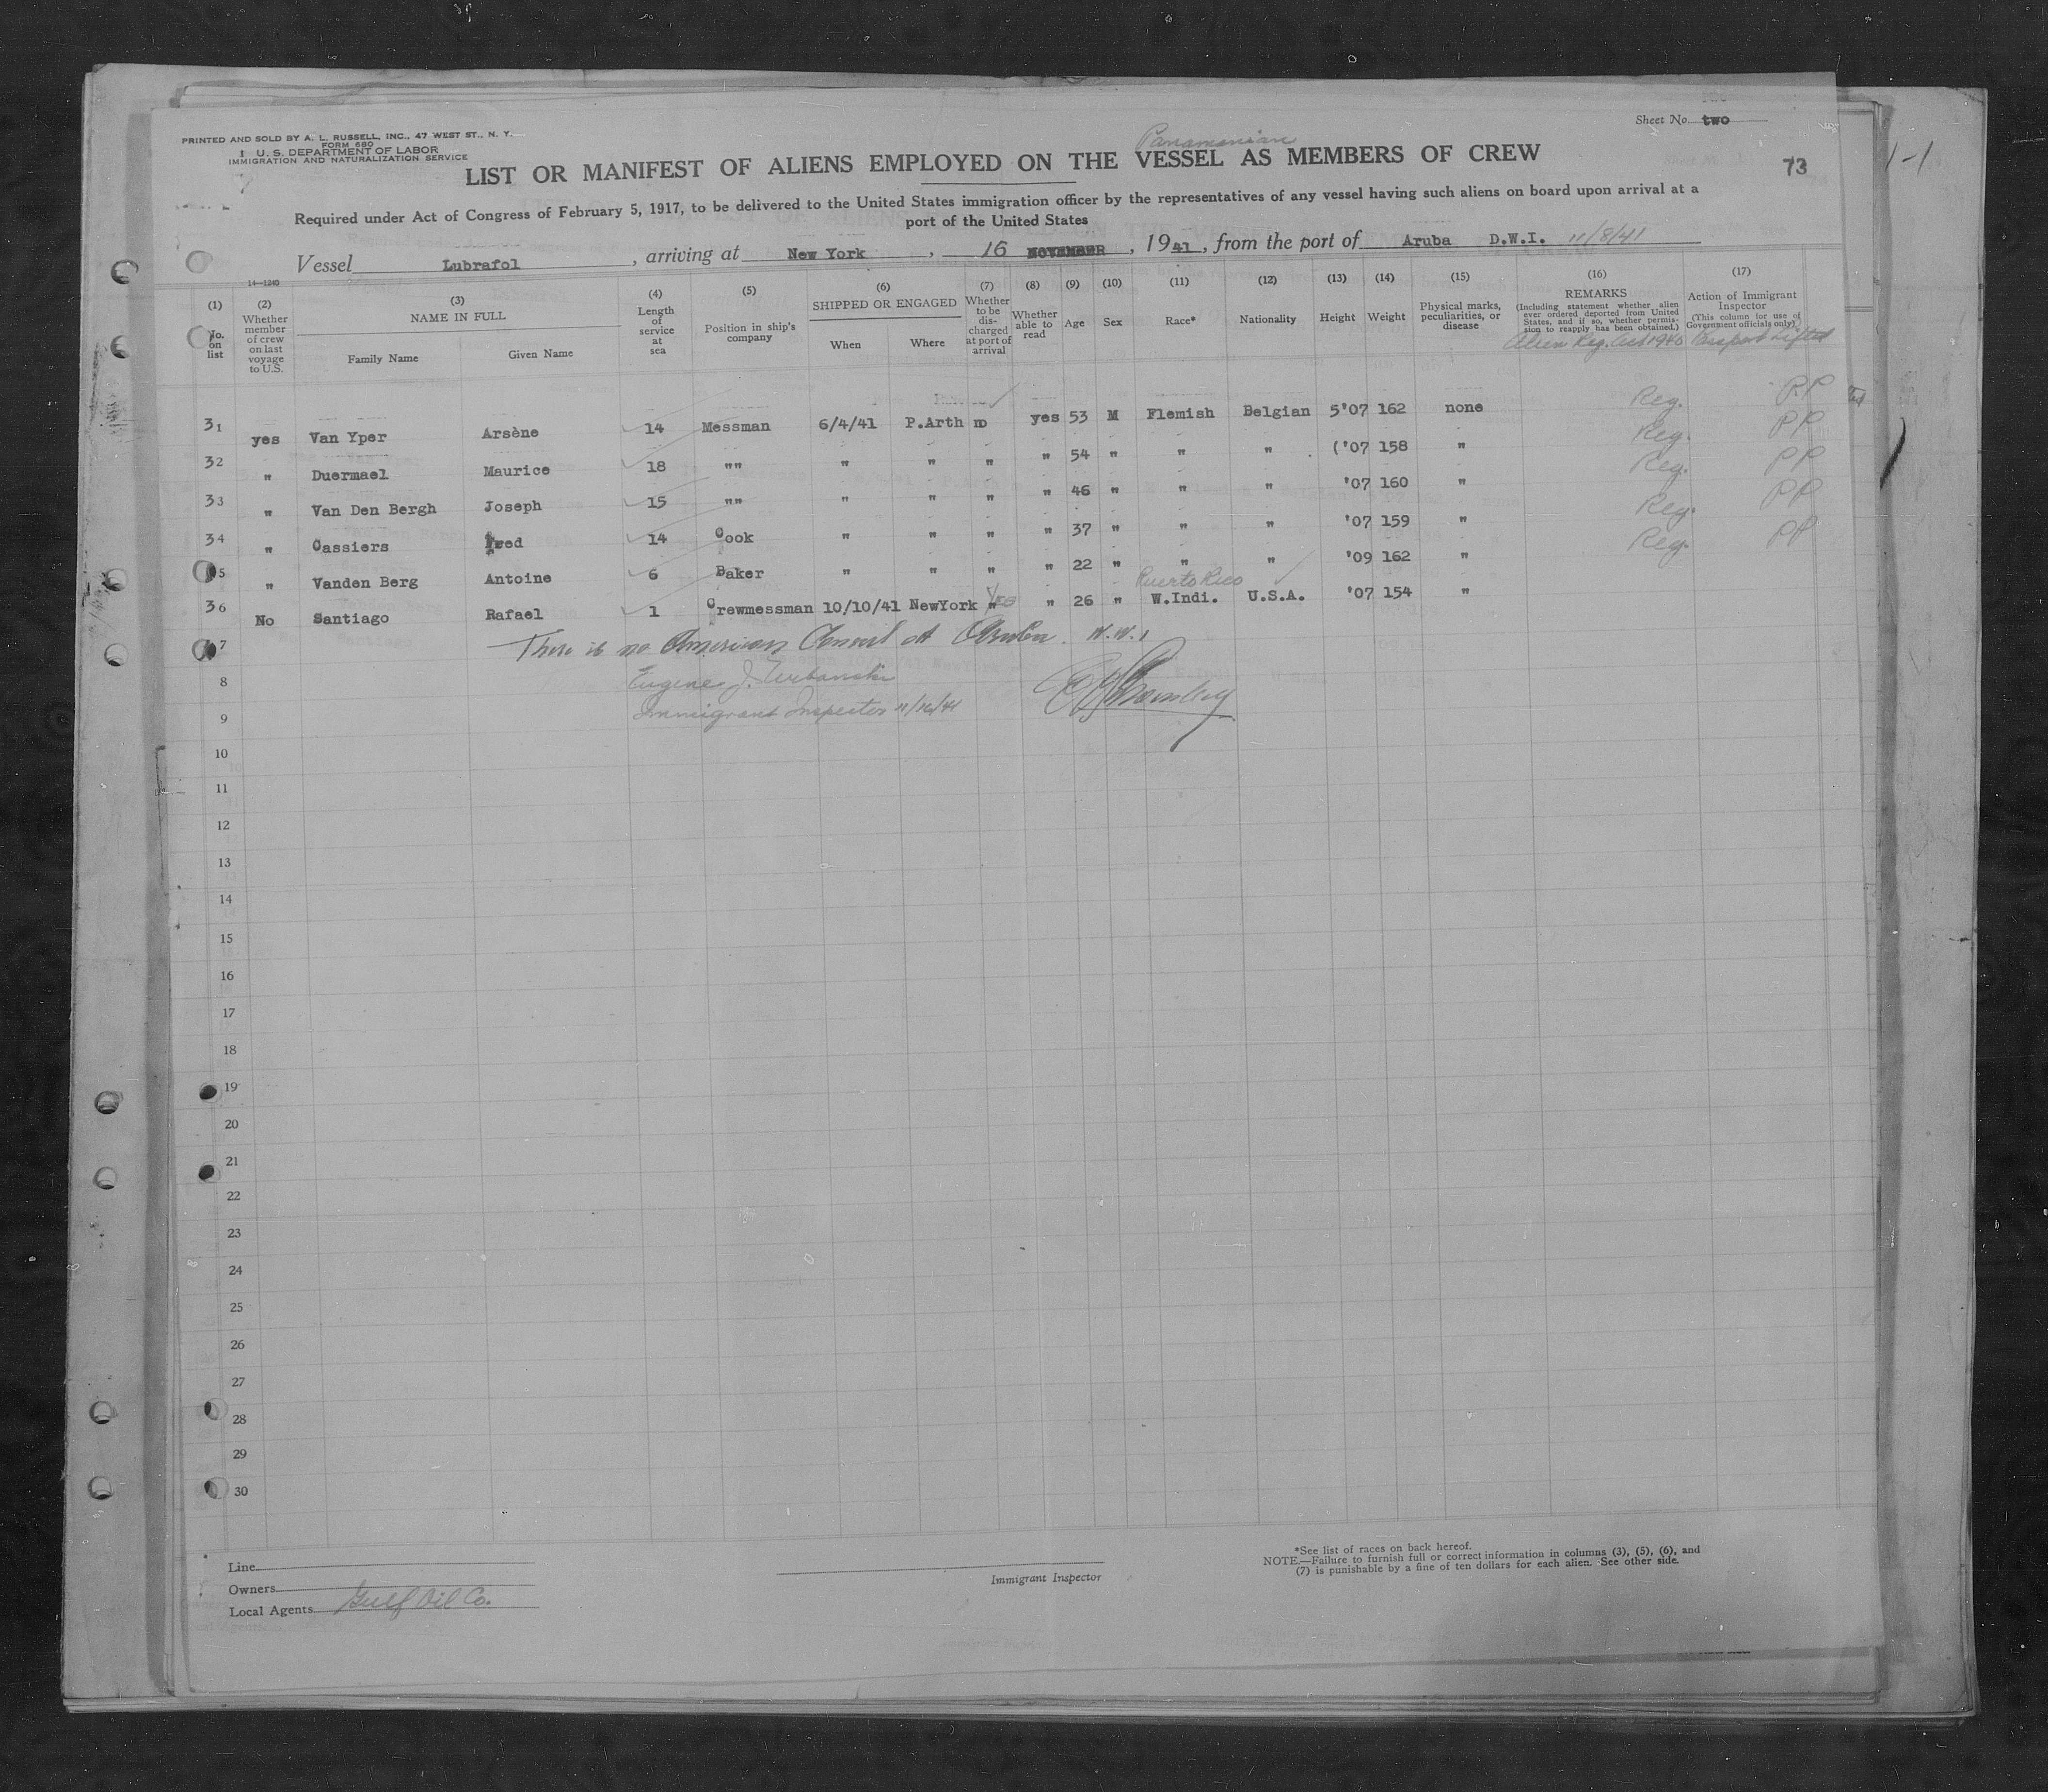 Sheet No. two
PRINTED AND SOLD BY A. L. RUSSELL, INC., 47 WEST ST., N. Y.
FORM 680
1 U. S. DEPARTMENT OF LABOR
IMMIGRATION AND NATURALIZATION SERVICE
Panamanian
LIST OR MANIFEST OF ALIENS EMPLOYED ON THE VESSEL AS MEMBERS OF CREW
73
1-1
Required under Act of Congress of February 5, 1917, to be delivered to the United States immigration officer by the representatives of any vessel having such aliens on board upon arrival at a
port of the United States
Vessel Lubrafol, arriving at New York, 16 NOVEMBER, 1941, from the port of Aruba D.W.I. 11/8/41
14—1240
(1) No. on list
(2) Whether member of crew on last voyage to U.S.
(3) NAME IN FULL Family Name Given Name
(4) Length of service at sea
(5) Position in ship's company
(6) SHIPPED OR ENGAGED When Where
(7) Whether to be discharged at port of arrival
(8) Whether able to read
(9) Age
(10) Sex
(11) Race*
(12) Nationality
(13) Height
(14) Weight
(15) Physical marks, peculiarities, or disease
(16) REMARKS (Including statement whether alien ever ordered deported from United States, and if so, whether permission to reapply has been obtained.) Alien Reg. Act 1940
(17) Action of Immigrant Inspector (This column for use of Government officials only) Passport Lifted
31 yes Van Yper Arsène 14 Messman 6/4/41 P.Arth no yes 53 M Flemish Belgian 5'07 162 none Reg. PP
32 " Duermael Maurice 18 "" " " " " 54 " " " ('07 158 " Reg. PP
33 " Van Den Bergh Joseph 15 "" " " " " 46 " " " '07 160 " Reg. PP
34 " Cassiers Fred 14 Cook " " " " 37 " " " '07 159 " Reg. PP
5 " Vanden Berg Antoine 6 Baker " " " " 22 " " " '09 162 " Reg. PP
36 No Santiago Rafael 1 Crewmessman 10/10/41 NewYork " Yes " 26 " Puerto Rico W.Indi. U.S.A. '07 154 "
7 There is no American Consul at Aruba. N.W.I
8 Eugene J. Urbanski
9 Immigrant Inspector 11/16/41
10
11
12
13
14
15
16
17
18
19
20
21
22
23
24
25
26
27
28
29
30
Line
Owners
Local Agents Gulf Oil Co.
Immigrant Inspector
*See list of races on back hereof.
NOTE.—Failure to furnish full or correct information in columns (3), (5), (6), and
(7) is punishable by a fine of ten dollars for each alien. See other side.